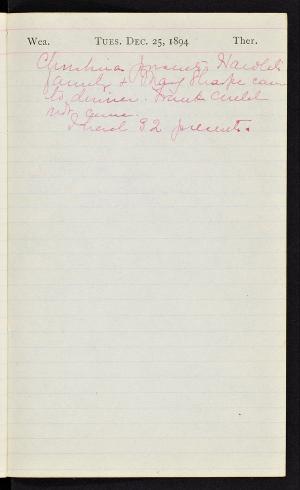 Wea. TUES. DEC. 25, 1894 Ther.
Christmas presents Harold's
family & Mary Sharpe came
to dinner. Hank could
not come.
I had 32 presents.